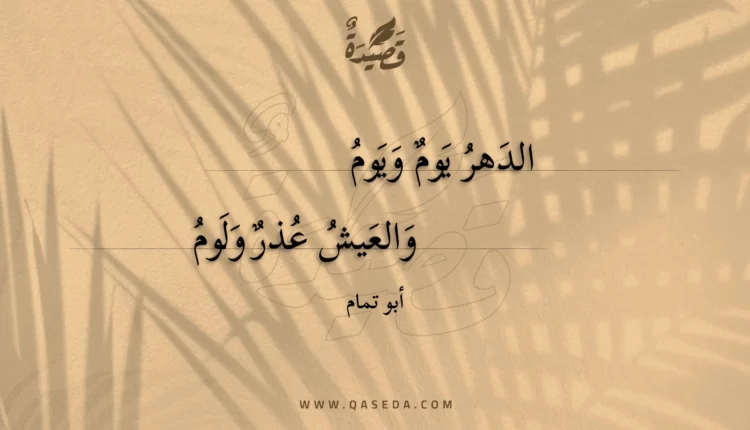 قَصِيدَةٌ
الدَهرُ يَومٌ وَيَومُ
وَالعَيشُ عُذرٌ وَلَومُ
أبو تمام
WWW.QASEDA.COM